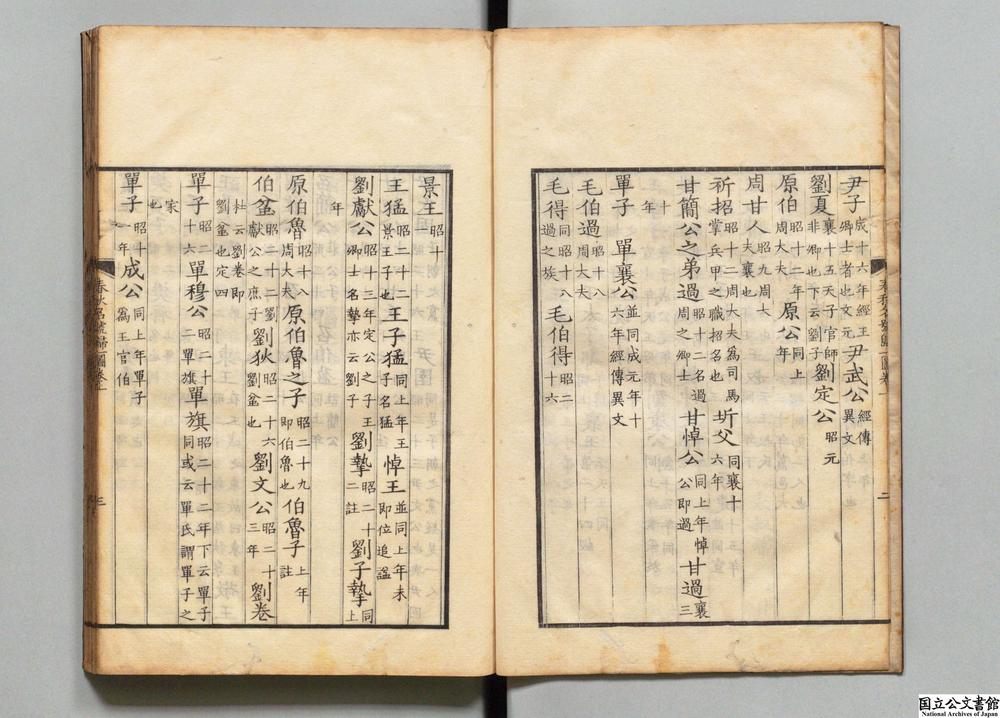 尹子成十六年經王卿士者也文元尹武公經傳異文
劉夏襄十五天子官師非卿也下云劉子劉定公昭元
原伯昭十二年周大夫原公同上年
周甘人昭九周大夫襄也
祈招昭十二周大夫為司馬掌兵甲之職招名也圻父同襄十六年
甘簡公之弟過昭十二名過周之卿士甘悼公同上年悼公即過甘過襄三
十年
單子單襄公並同成元年十六年經傳異文
毛伯過昭十八周大夫
毛得同昭十八過之族毛伯得昭二十六
景王昭十二
王猛昭二十二景王子也王子猛同上年王子名猛悼王並同上年未即位追諡
劉獻公昭十三年定公之子王卿士名摯亦云劉子劉摯昭二十二註劉子摯同上
年
原伯魯昭十八周大夫原伯魯之子昭二十九即伯魯也伯魯子上年註
伯盆昭二十二劉獻公之庶子劉狄昭二十六劉盆也劉文公昭二十三年劉卷
杜云劉卷即劉盆也定四
單子昭二十六單穆公昭二十二單旗單旗昭二十二年下云單子同或云單氏謂單子之
家也
單子昭十一年成公同上年單子為王官伯
春秋名號歸一圖卷上
二
三
国立公文書館
National Archives of Japan